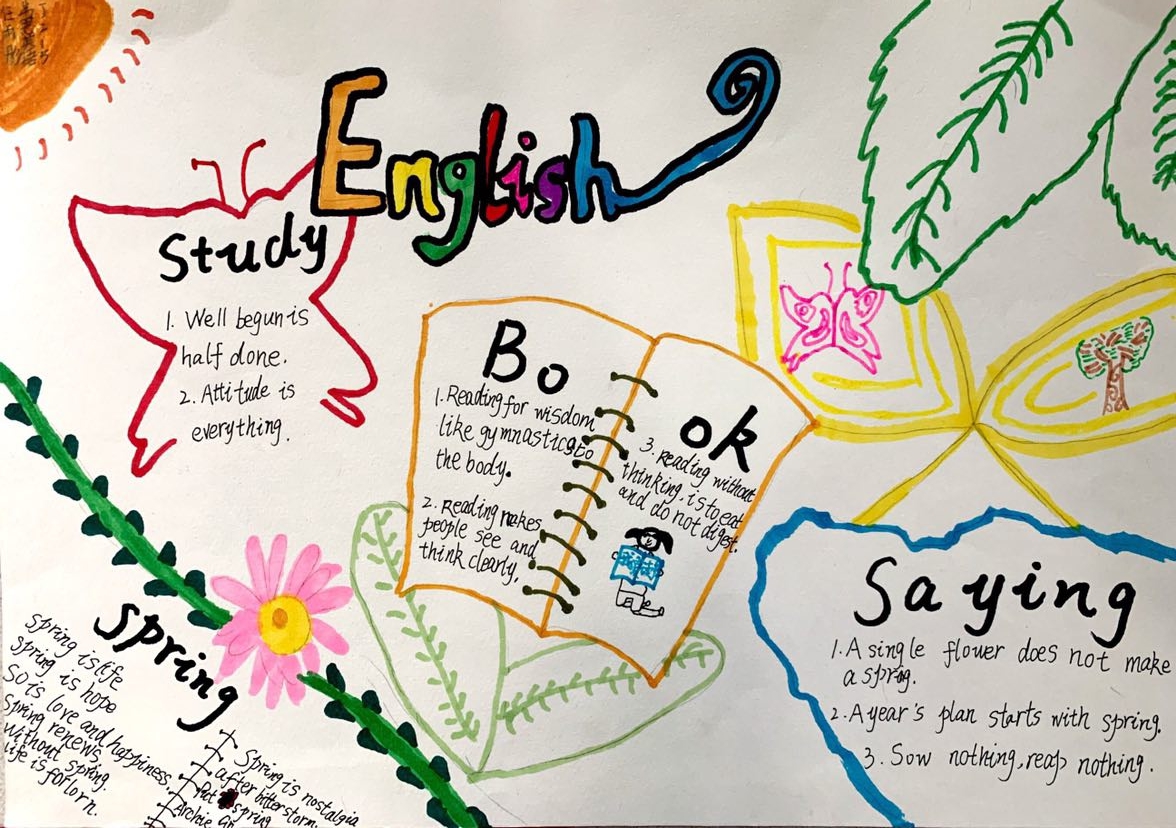 English
Study
1. Well begun is
half done.
2. Attitude is
everything.
Bo
1. Reading for wisdom
like gymnastics to
the body.
2. Reading makes
people see and
think clearly.
ok
3. Reading without
thinking, is to eat
and do not digest.
Spring
Spring is life
Spring is hope
So is love and happiness,
Spring renews,
without spring.
life is forlorn.
Spring is nostalgia
after bitter storm.
spring
Archie
Saying
1. A single flower does not make
a sprng.
2. A year's plan starts with spring.
3. Sow nothing, reap nothing.